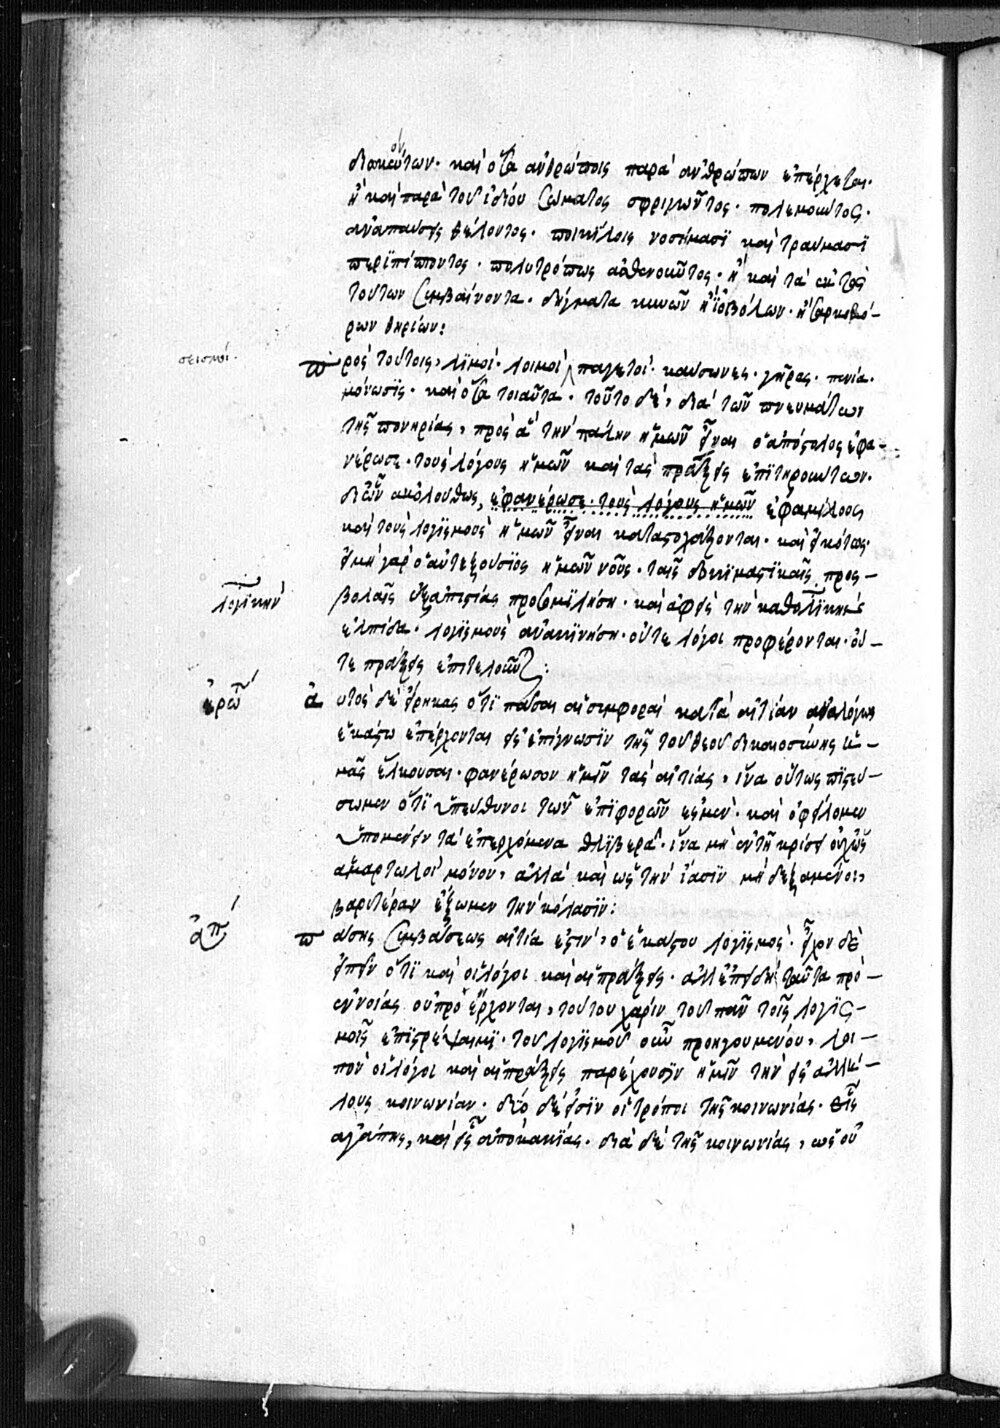 διοικούντων· καὶ ὅσα ἀνθρώποις παρὰ ἀνθρώπων ἐπέρχεται·
ἢ καὶ παρὰ τοῦ ἰδίου σώματος σφριγῶντος· πολεμοῦντος·
ἀναπαύσεως θέλοντος· ποικίλοις νοσήμασϊ καὶ τραύμασϊ
περϊπίπτοντος· πολυτρόπως ἀσθενοῦντος· ἢ καὶ τὰ ἐκτὸς
τούτων συμβαίνοντα· δήγματα κυνῶν ἢ ἰοβόλων· ἢ σαρκοβό-
ρων θηρίων:
σεισμοί·
πρὸς τούτοις, λϊμοί· λοιμοὶ παγετοί· καύσωνες· γῆρας· πενία·
μόνωσϊς· καὶ ὅσα τοιαῦτα· τοῦτο δὲ, διὰ τῶν πνευμάτων
τῆς πονηρίας, πρὸς ἃ τὴν πάλην ἡμῶν εἶναι ὁ ἀπόστολος ἐφα-
νέρωσε· τοὺς λόγους ἡμῶν καὶ τὰς πράξεις ἐπϊτηρούντων·
δι' ὧν ἀκολούθως, ἐφανέρωσε· τοὺς λόγους ἡμῶν ἐφαμίλλους
καὶ τοὺς λογϊσμοὺς ἡμῶν εἶναι καταστοχάζονται· καὶ εἰκότως·
εἰ μὴ γὰρ ὁ αὐτεξούσϊος ἡμῶν νοῦς· ταῖς προσ-
λογϊκὴν
βολαῖς ἐξ ἀπιστίας προσομϊλήση· καὶ ἀφεὶς τὴν καθολϊκὴν
ἐλπίδα· λογϊσμοὺς ἀνακϊνήση· οὔτε λόγοι προφέρονται· οὔ-
τε πράξεις ἐπιτελοῦνται:
ἐρώ
αὐτὸς δὲ εἴρηκας ὅτϊ πᾶσαι αἱ συμφοραὶ κατὰ αἰτίαν ἀναλόγως
ἑκάστω ἐπέρχονται εἰς ἐπίγνωσϊν τῆς τοῦ θεοῦ δικαιοσύνης ἡ-
μᾶς ἕλκουσαι· φανέρωσον ἡμῖν τὰς αἰτίας, ἵνα οὕτως πϊστεύ-
σωμεν ὅτϊ ὑπεύθυνοι τῶν ἐπϊφορῶν ἐσμέν· καὶ ὀφείλομεν
ὑπομένειν τὰ ἐπερχόμενα θλϊβερά· ἵνα μὴ ἐν τῆ κρίσει οὐχ ὡς
ἁμαρτωλοὶ μόνον, ἀλλὰ καὶ ὡς τὴν ἴασϊν μὴ δεξάμενοι,
βαρυτέραν ἕξωμεν τὴν κόλασϊν:
ἀπ
πάσης συμβάσεως αἰτία ἐστιν, ὁ ἑκάστου λογϊσμός· εἶχον δὲ
εἰπεῖν ὅτϊ καὶ οἱ λόγοι καὶ αἱ πράξεις· ἀλλ' ἐπειδὴ ταῦτα πρὸ
ἐννοίας οὐ προέρχονται, τούτου χάριν τοῦ πᾶν τοῖς λογϊσ-
μοῖς ἐπϊγρέψαιμϊ· τοῦ λογϊσμοῦ οὖν προηγουμένου, λοι-
πὸν οἱ λόγοι καὶ αἱ πράξεις παρέχουσϊν ἡμῖν τὴν εἰς ἀλλή-
λους κοινωνίαν· δύο δέ εἰσϊν οἱ τρόποι τῆς κοινωνίας· εἷς
ἀγάπης, καὶ εἷς ἀπὸ κακϊας· διὰ δὲ τῆς κοινωνίας, ὡς οὐ